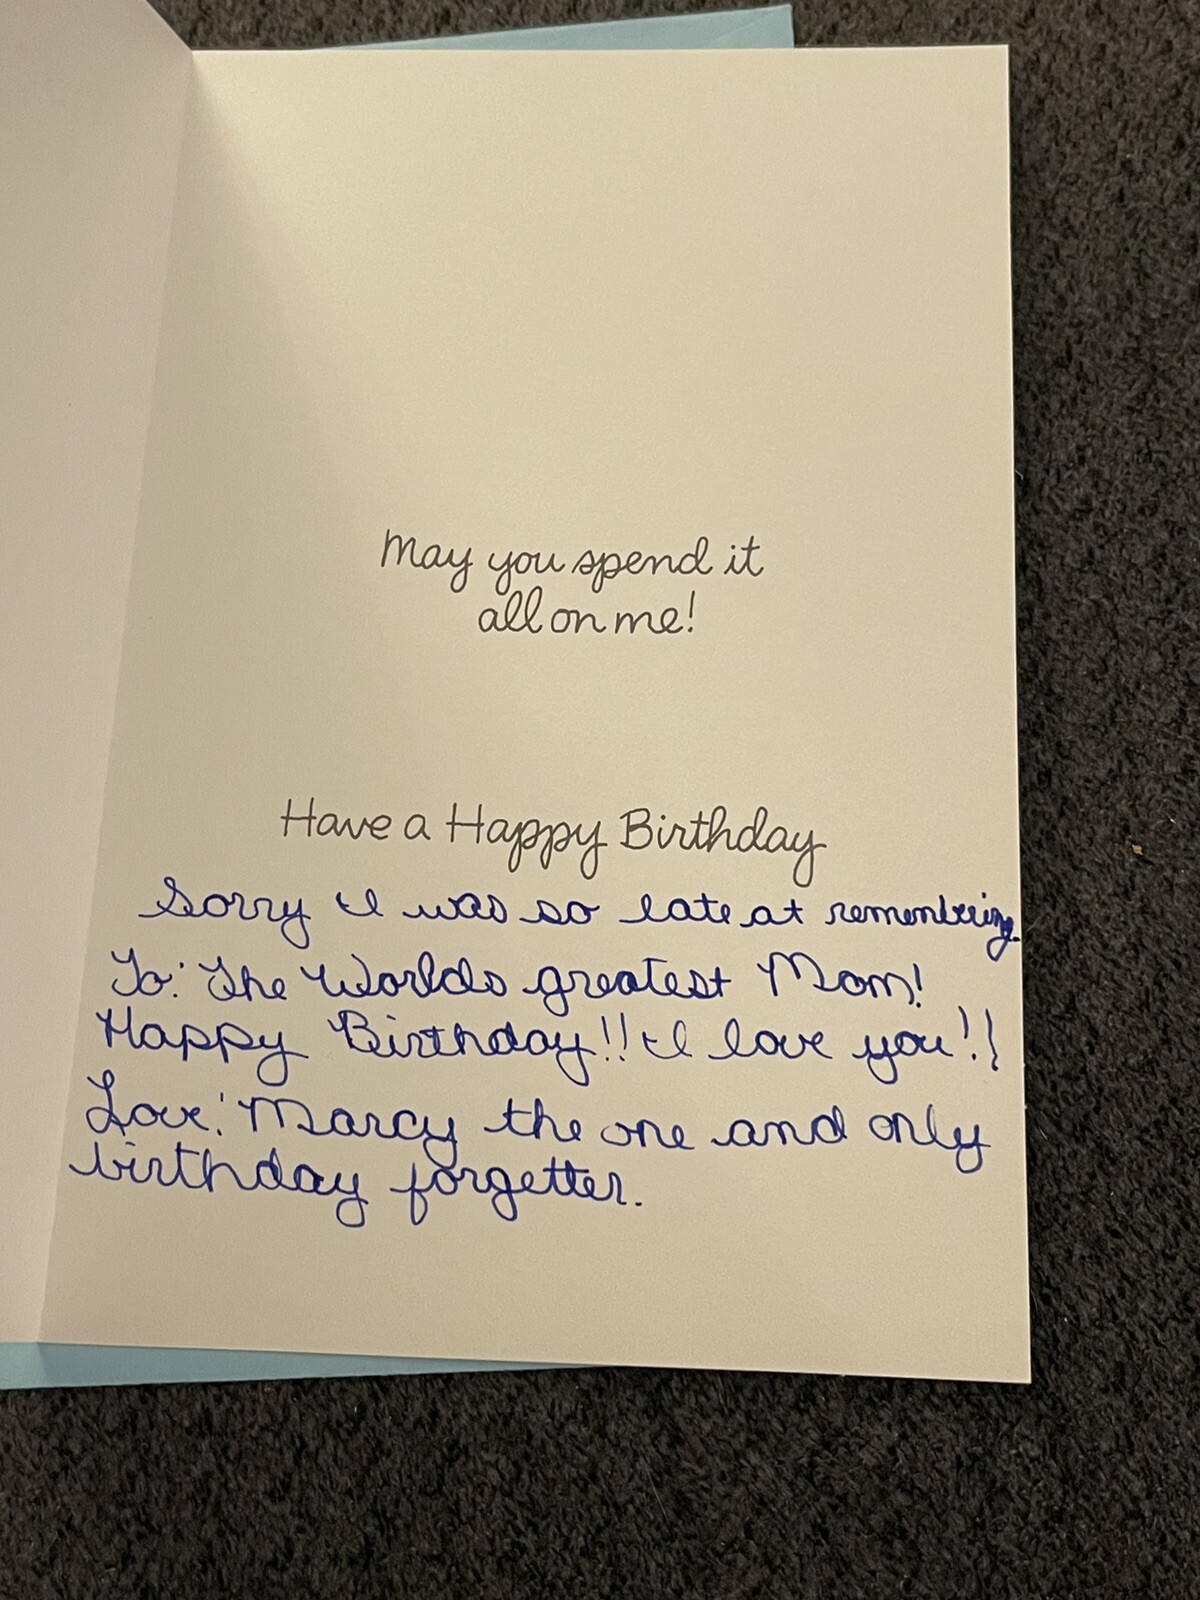 May you spend it
all on me!
Have a Happy Birthday
Sorry I was so late at remembering.
To: The Worlds greatest Mom!
Happy Birthday!! I love you!!
Love: Marcy the one and only
birthday forgetter.